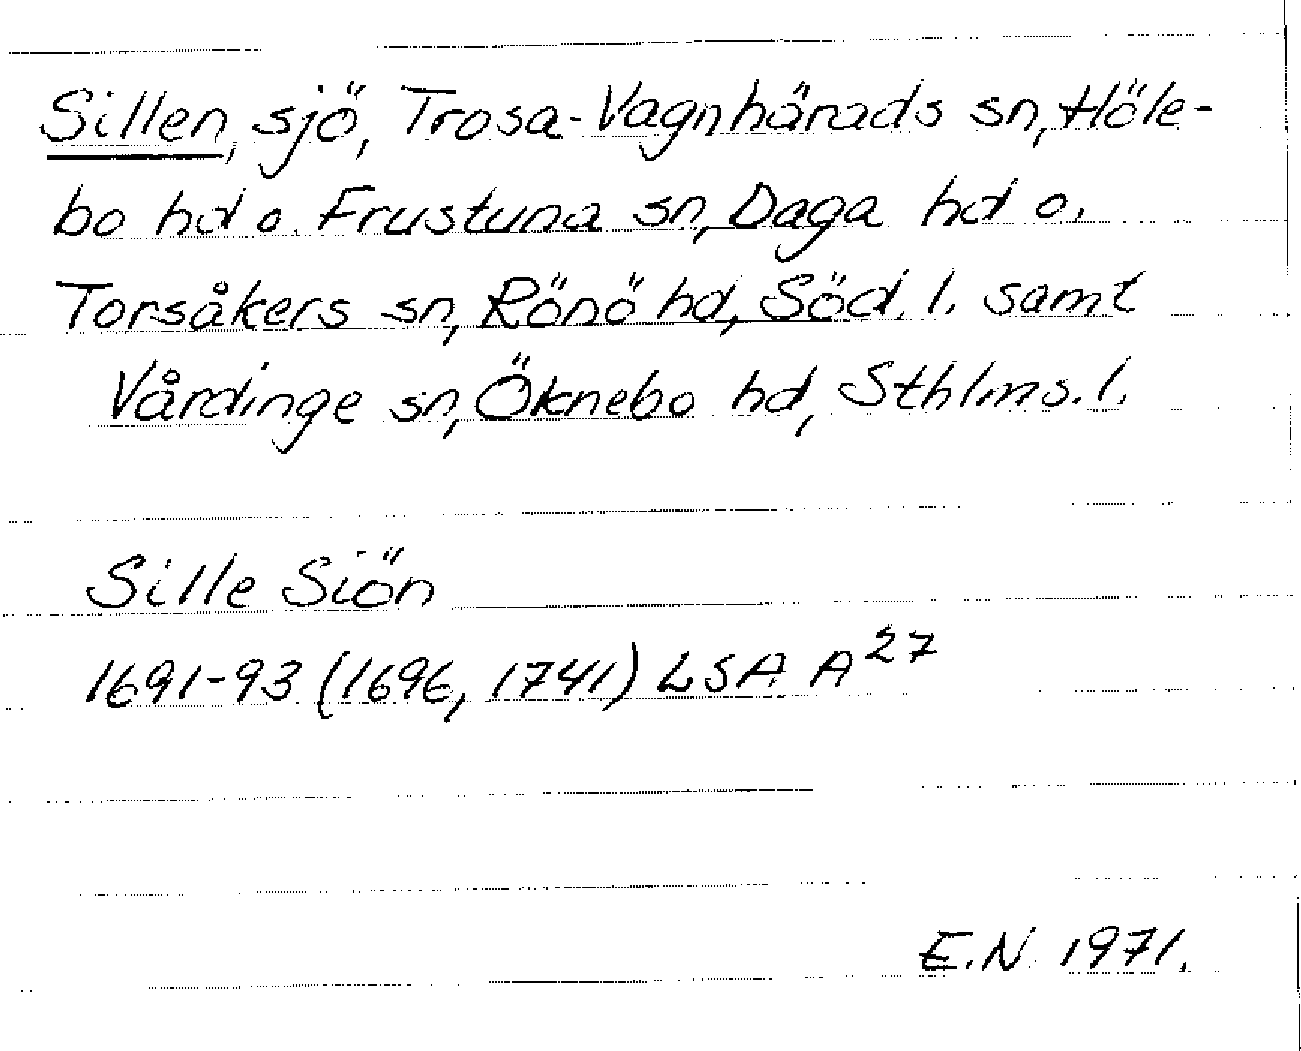 Sillen, sjö, Trosa-Vagnhärads sn, Höle-
bo hd o. Frustuna sn, Daga hd o.
Torsåkers sn, Rönö hd, Söd. l. samt
Vårdinge sn, Öknebo hd, Sthlms. l.
Sille Siön
1691-93 (1696, 1741) LSA A27
E.N. 1971.